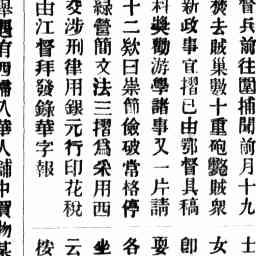 督兵前往圍捕聞前月十九
焚去賊巢數十重砲斃賊衆
新政事宜摺已由鄂督具稿
科獎勵游學諸事又一片請
十二欵曰崇節儉破常格停
綠營簡文法三摺爲采用西
交涉刑律用銀元行印花稅
由江督拜發錄華字報
遇有西婦入華人舖中買物某
士
女
卽
耍
各
坐
云
按